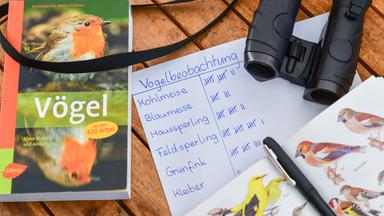 Steinbachs Naturführer
Vögel
420 Arten
Ulmer
Vogelbeobachtung
Kohlmeise
Blaumeise
Haussperling
Feldsperling
Grünfink
Kleiber